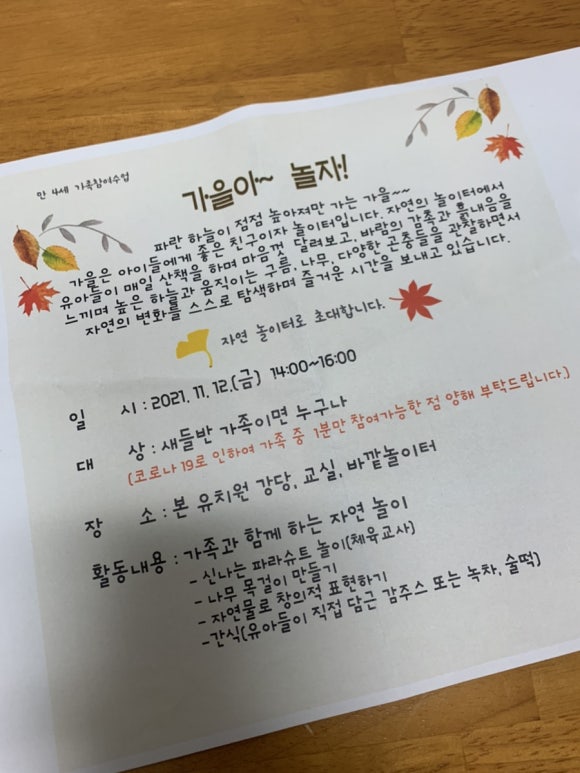 만 4세 가족참여수업
가을아~ 놀자!
파란 하늘이 점점 높아져만 가는 가을~~
가을은 아이들에게 좋은 친구이자 놀이터입니다. 자연의 놀이터에서
유아들이 매일 산책을 하며 마음껏 달려보고, 바람의 감촉과 흙내음을
느끼며 높은 하늘과 움직이는 구름, 나무, 다양한 곤충들을 관찰하면서
자연의 변화를 스스로 탐색하며 즐거운 시간을 보내고 있습니다.
자연 놀이터로 초대합니다.
일 시 : 2021. 11. 12.(금) 14:00~16:00
대 상 : 새들반 가족이면 누구나
(코로나 19로 인하여 가족 중 1분만 참여가능한 점 양해 부탁드립니다.)
장 소 : 본 유치원 강당, 교실, 바깥놀이터
활동내용 : 가족과 함께 하는 자연 놀이
- 신나는 파라슈트 놀이(체육교사)
- 나무 목걸이 만들기
- 자연물로 창의적 표현하기
-간식(유아들이 직접 담근 감주스 또는 녹차, 술떡)